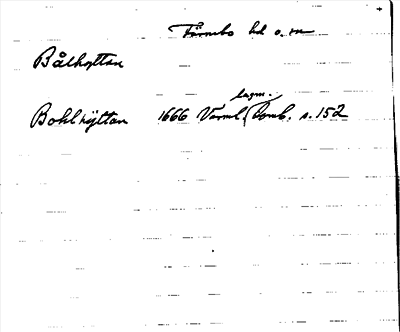 Färnebo hd o. sn
Bålhyttan
lagm.
Bohlhÿttan 1666 Värml. domb. s. 152